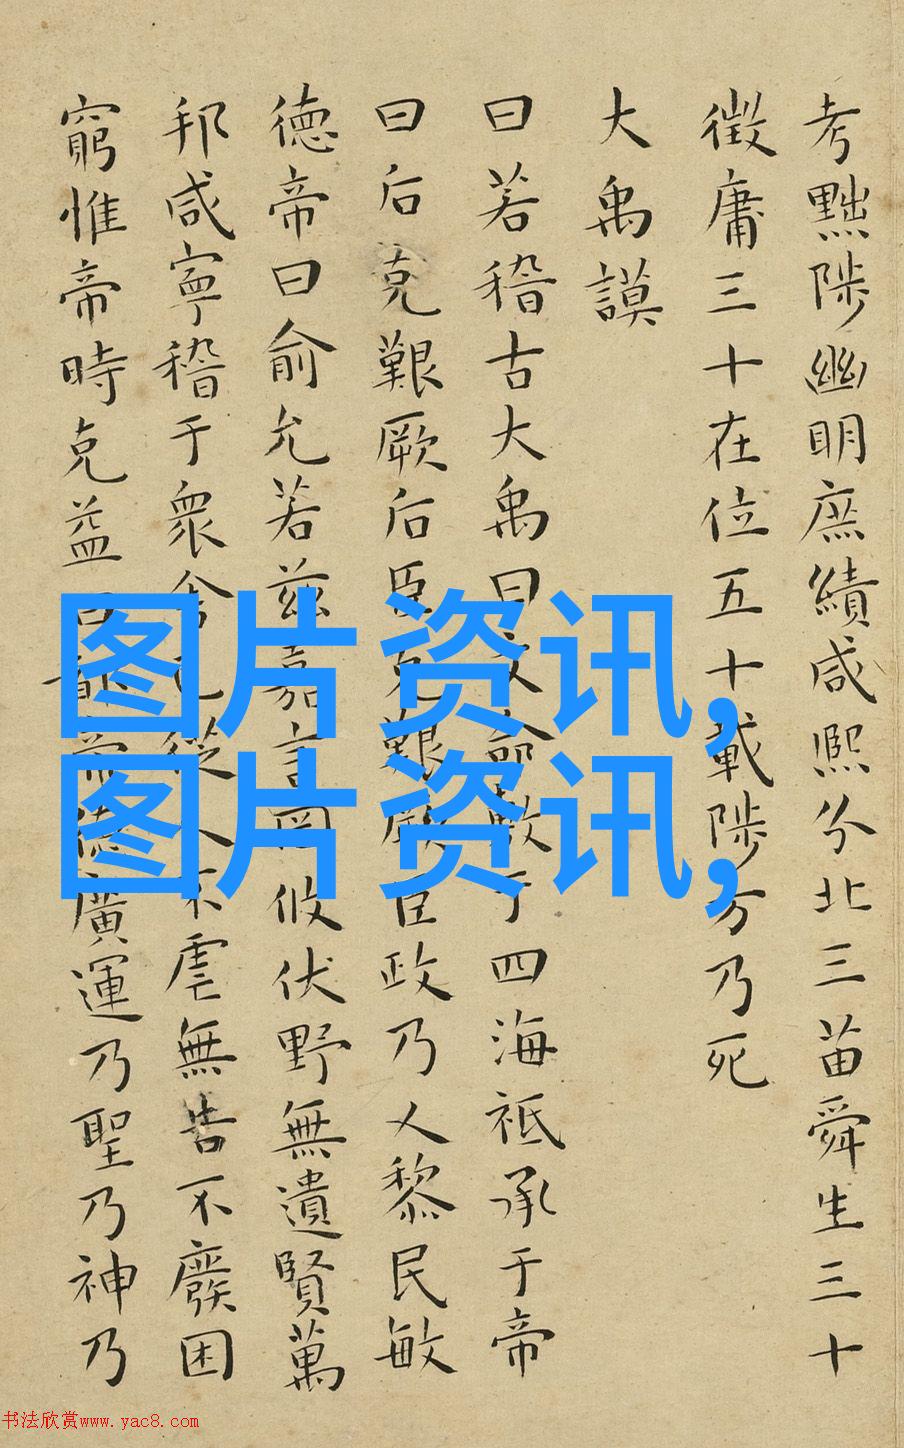 考黜陟幽明庶績咸熙分北三苗舜生三十
徵庸三十在位五十載陟方乃死
大禹謨
曰若稽古大禹曰文命敷于四海祗承于帝
曰后克艱厥后臣克艱厥臣政乃乂黎民敏
德帝曰俞允若茲嘉言罔攸伏野無遺賢萬
邦咸寧稽于衆舍己從人不虐無告不廢困
窮惟帝時克益曰都帝德廣運乃聖乃神乃
图片资讯,
图片资讯,
书法欣赏www.yac8.com